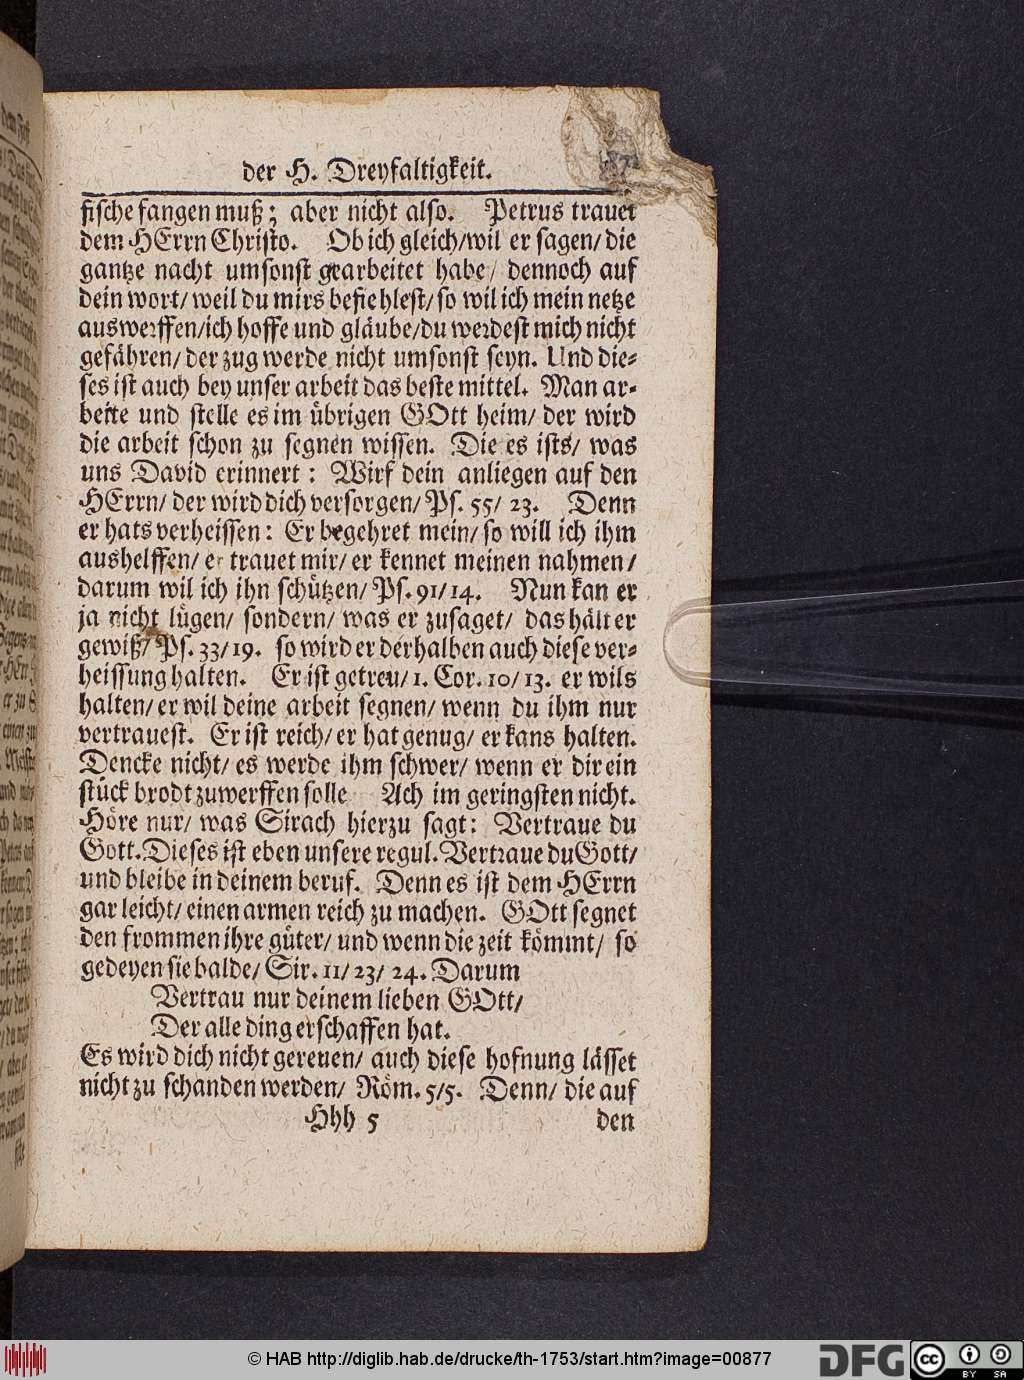 der H. Dreyfaltigkeit.
fische fangen muß; aber nicht also. Petrus trauet
dem HErrn Christo. Ob ich gleich/wil er sagen/ die
gantze nacht umsonst gearbeitet habe/ dennoch auf
dein wort/ weil du mirs befiehlest/ so wil ich mein netze
auswerffen/ich hoffe und gläube/du werdest mich nicht
gefähren/ der zug werde nicht umsonst seyn. Und die-
ses ist auch bey unser arbeit das beste mittel. Man ar-
beite und stelle es im übrigen GOtt heim/ der wird
die arbeit schon zu segnen wissen. Die es ists/ was
uns David erinnert: Wirf dein anliegen auf den
HErrn/ der wird dich versorgen/ Ps. 55/ 23. Denn
er hats verheissen: Er begehret mein/ so will ich ihm
aushelffen/ er trauet mir/ er kennet meinen nahmen/
darum wil ich ihn schützen/ Ps. 91/14. Nun kan er
ja nicht lügen/ sondern/ was er zusaget/ das hält er
gewiß/ Ps. 33/19. so wird er derhalben auch diese ver-
heissung halten. Er ist getreu/ 1. Cor. 10/ 13. er wils
halten/ er wil deine arbeit segnen/ wenn du ihm nur
vertrauest. Er ist reich/ er hat genug/ er kans halten.
Dencke nicht/ es werde ihm schwer/ wenn er dir ein
stück brodt zuwerffen solle Ach im geringsten nicht.
Höre nur/ was Sirach hierzu sagt: Vertraue du
Gott. Dieses ist eben unsere regul. Vertraue du Gott/
und bleibe in deinem beruf. Denn es ist dem HErrn
gar leicht/ einen armen reich zu machen. GOtt segnet
den frommen ihre güter/ und wenn die zeit kömmt/ so
gedeyen sie balde/ Sir. 11/ 23/ 24. Darum
Vertrau nur deinem lieben GOtt/
Der alle ding erschaffen hat.
Es wird dich nicht gereuen/ auch diese hofnung lässet
nicht zu schanden werden/ Röm. 5/5. Denn/ die auf
Hhh 5 den
© HAB http://diglib.hab.de/drucke/th-1753/start.htm?image=00877
DFG
cc BY SA